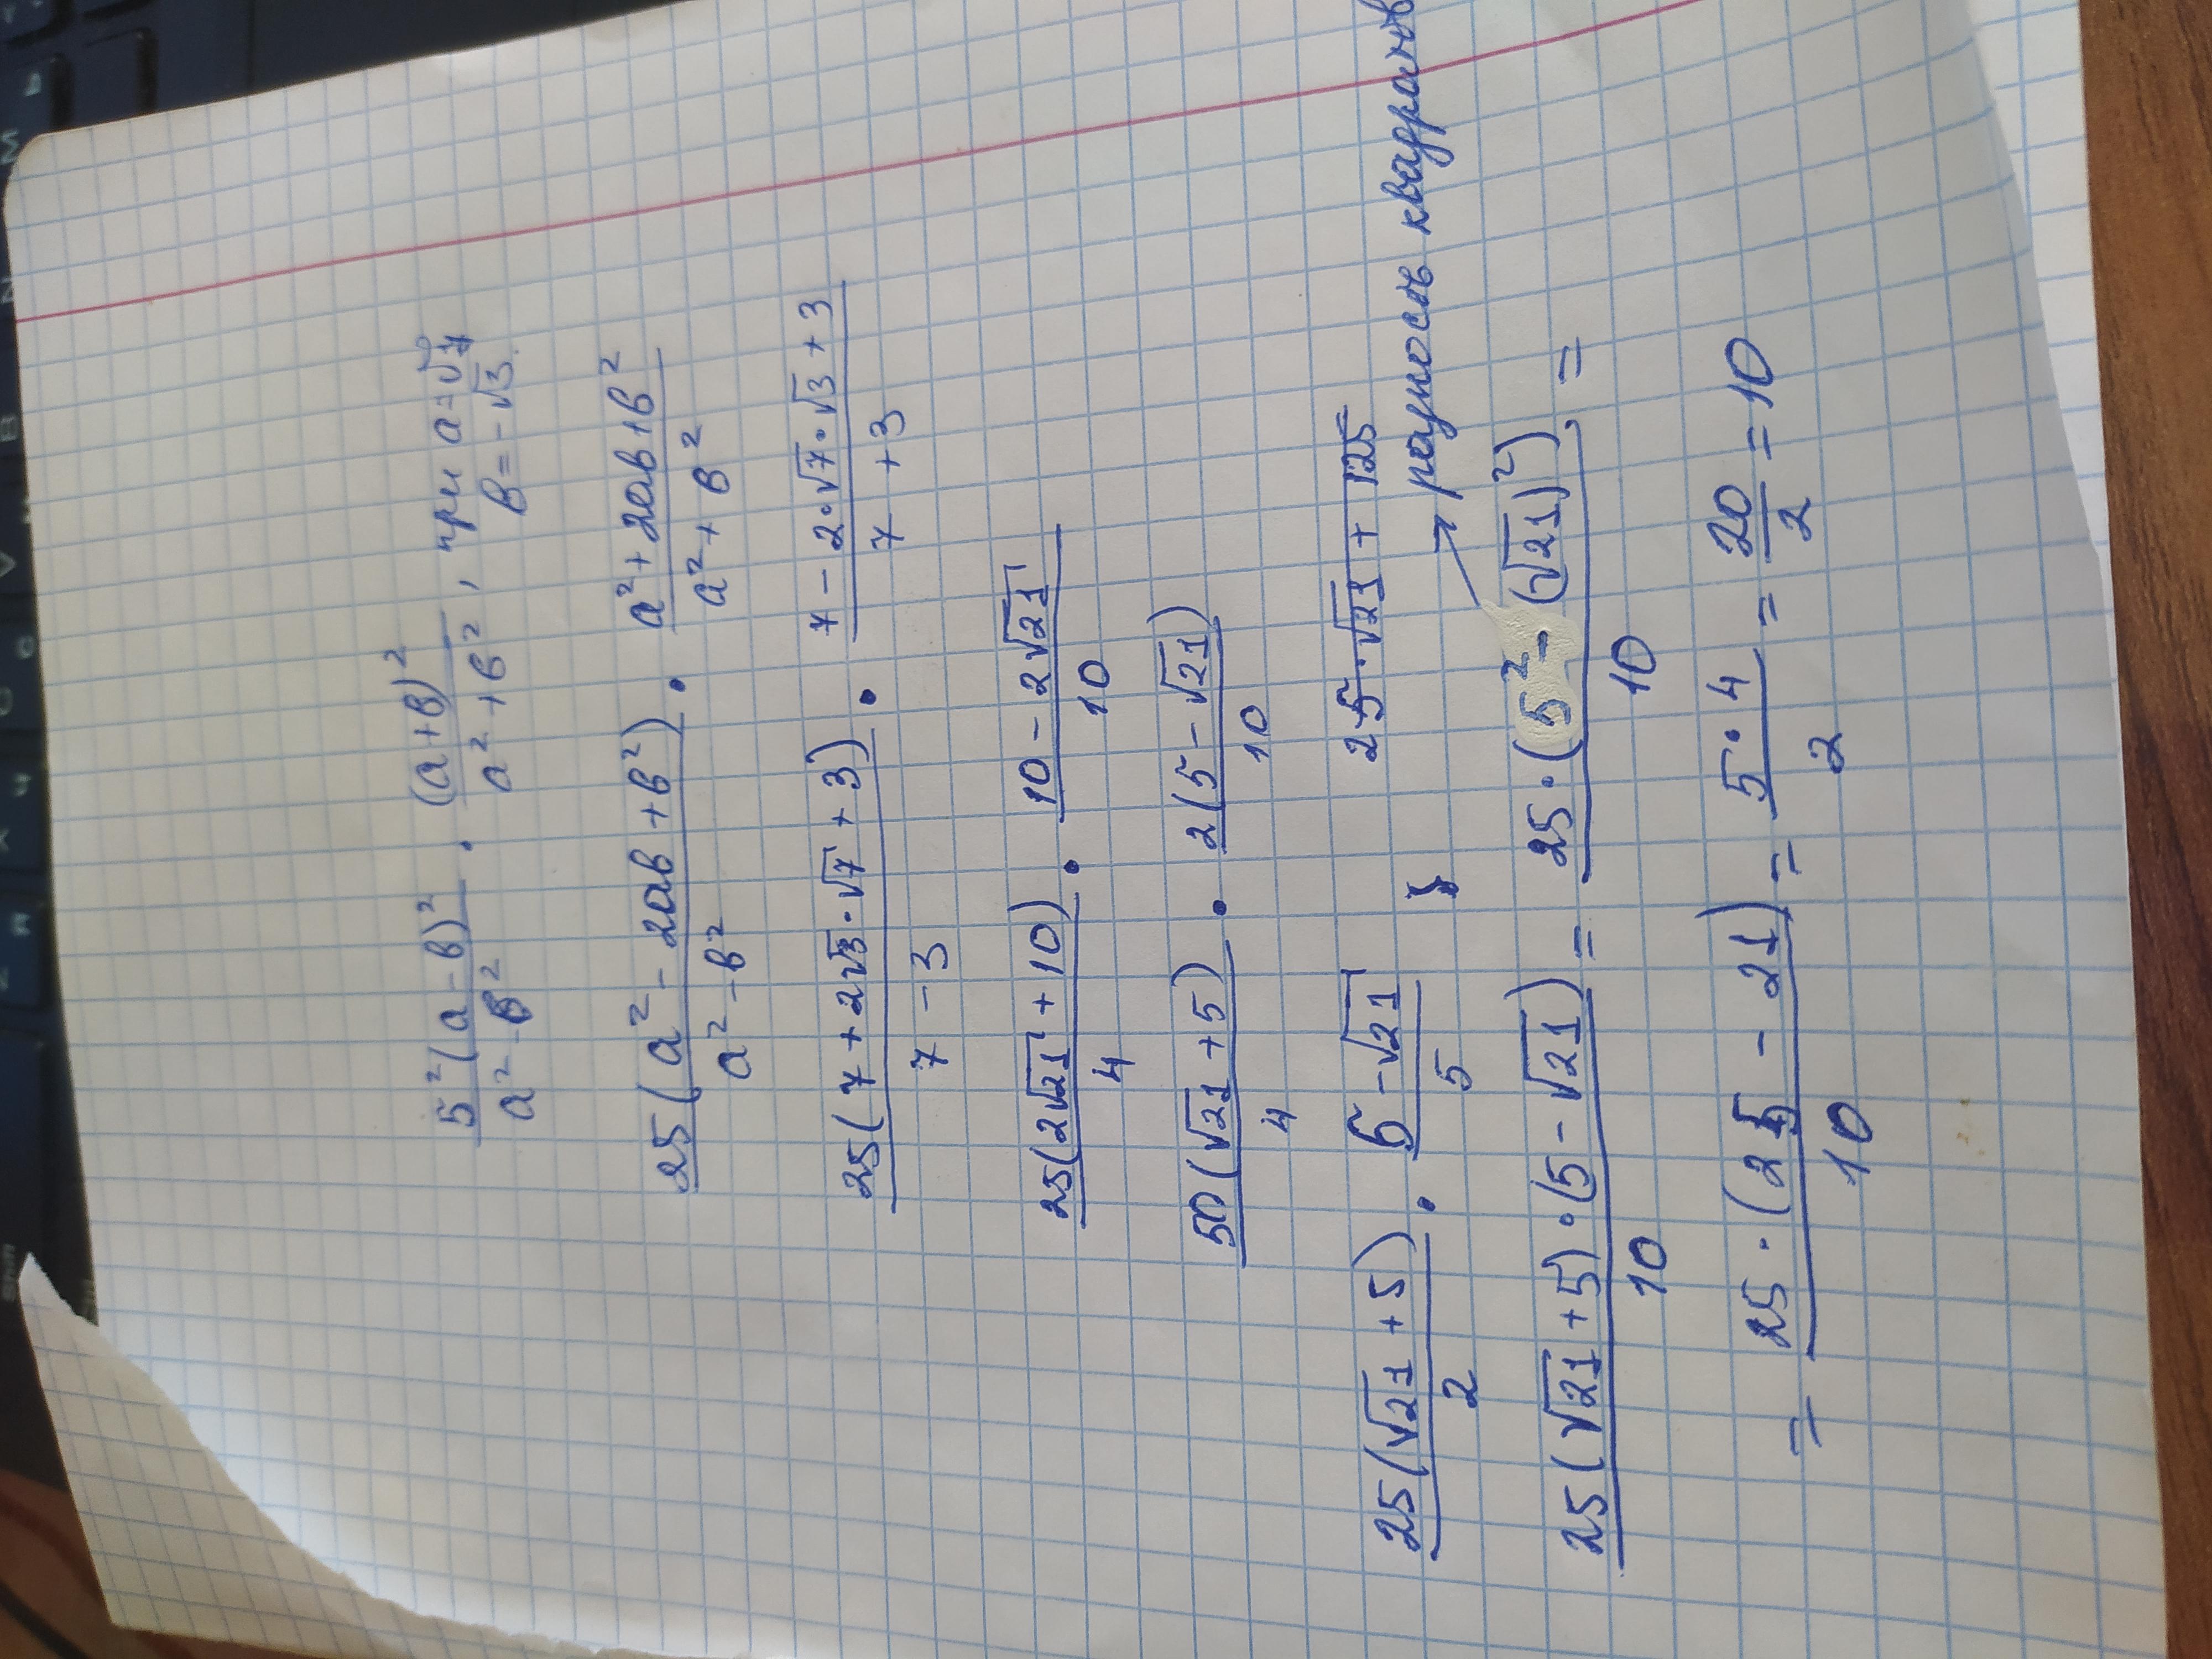 5²(a-в)²/(a²-в²) · (a+в)²/(a²+в²), при a=√7
в=-√3
25(a²-2aв+в²)/(a²-в²) · (a²+2aв+в²)/(a²+в²)
25(7+2√3·√7+3)/(7-3) · (7-2·√7·√3+3)/(7+3)
25(2√21+10)/4 · (10-2√21)/10
50(√21+5)/4 · 2(5-√21)/10
25(√21+5)/2 · (5-√21)/5
25·√21+125
→ разность квадратов
25(√21+5)·(5-√21)/10 = 25·(5²-(√21)²)/10 =
= 25·(25-21)/10 = 5·4/2 = 20/2 = 10